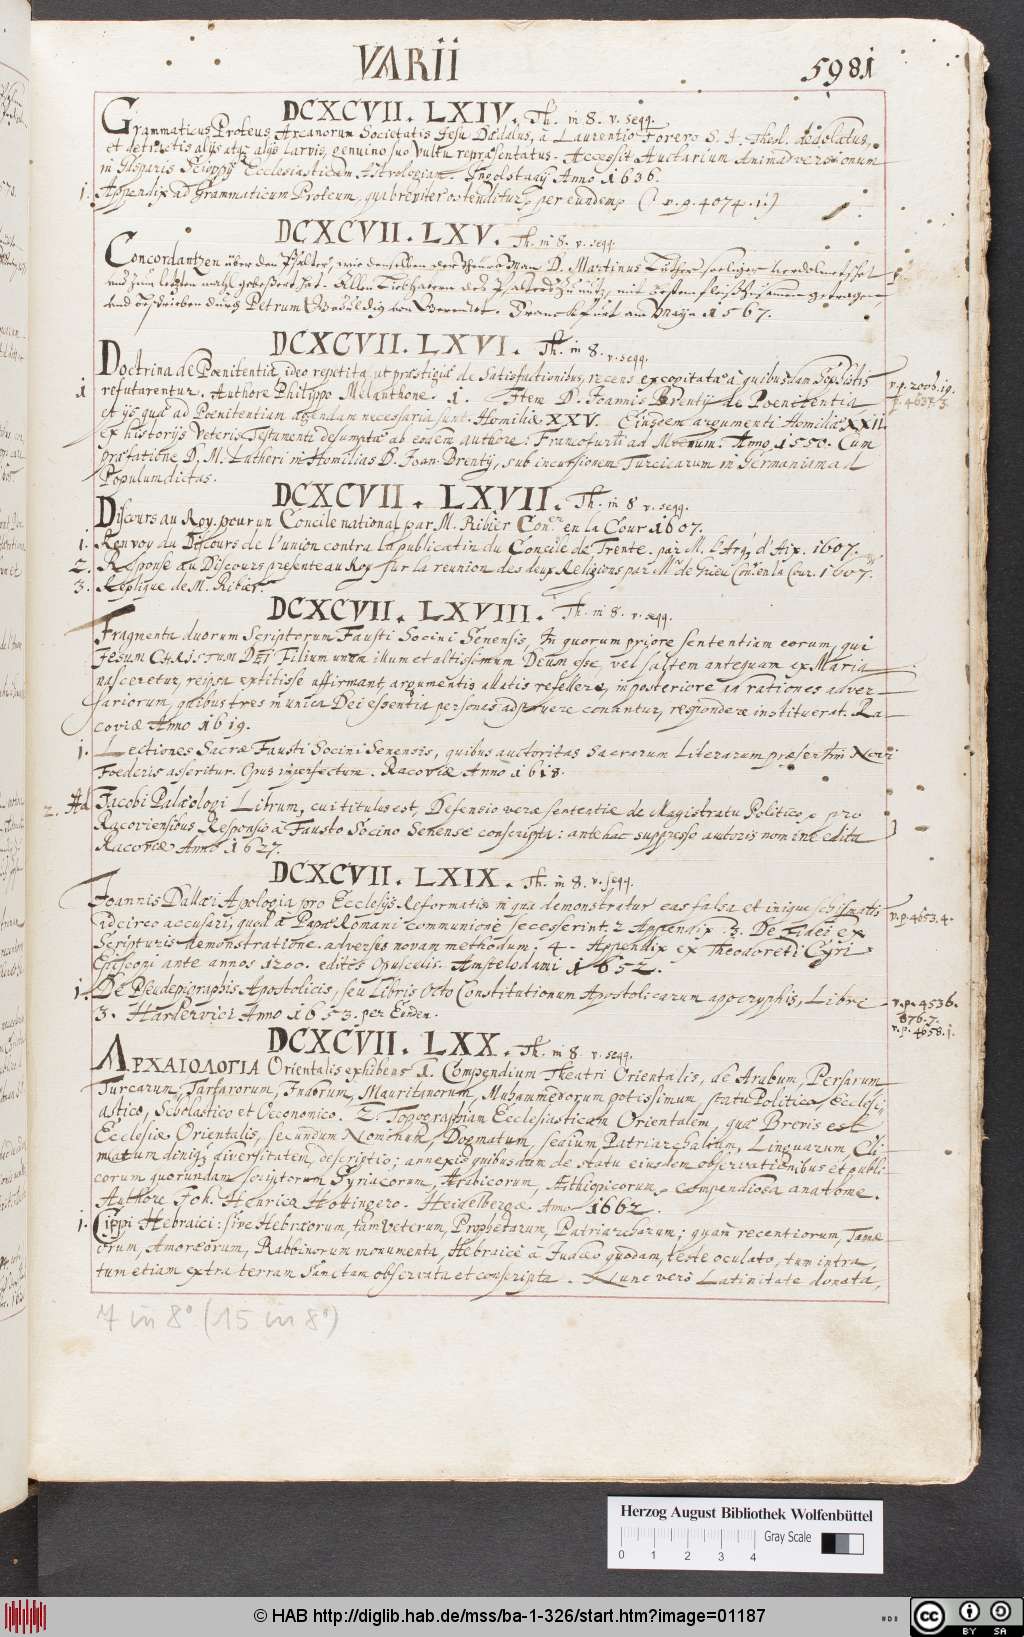 VARII 5981
DCXCVII. LXIV. Th. in 8. v. seqq.
Grammaticus Proteus, Arcanorum Societatis Jesu Dædalus, à Laurentio Forero S. J. Theol. dedolatus,
et detractis alijs atq3 alijs larvis, genuino suo vultu repræsentatus. Accessit Auctarium Animadversionum
in Gasparis Scioppij Ecclesiasticam Astrologiam. Ingolstadij Anno 1636.
1. Appendix ad Grammaticum Proteum, qua breviter ostenditur, per eundem (v. p. 4074. 1.)
DCXCVII. LXV. Th. in 8. v. seqq.
Concordantzen über den Psalter, wie denselben der Thewre Man D. Martinus Luther seeliger verdolmetschet
und zum letzten mahl gebessert hat. Allen Liebhabern des Psalters zu nutz, mit bestem fleiß zusamen getragen,
und beschrieben durch Petrum von . Franckfurt am Mayn 1567.
DCXCVII. LXVI. Th. in 8. v. seqq.
Doctrina de Pœnitentia, ideo repetita, ut præstigiæ de Satisfactionibus, recens excogitatæ à quibusdam Sophistis v. p. 2006. 19.
1 refutarentur. Authore Philippo Melanthone. 1. Item D. Joannis Brentij de Pœnitentia, p. 4637. 3.
et ijs quæ ad Pœnitentiam agendam necessaria sunt. Homiliæ XXV. Eiusdem argumenti Homiliæ XXII.
ex historijs Veteris Testamenti desumptæ ab eodem authore: Francofurti ad Mœnum. Anno 1550. Cum
præfatione D. M. Lutheri in Homilias D. Joan. Brentij, sub incursionem Turcicarum in Germaniam ad
Populum dictas.
DCXCVII. LXVII. Th. in 8 v. seqq.
Discours au Roy, pour un Concile national par M. Ribier Con.er en la Cour 1607.
1. Renvoy du Discours de l'union contra la publicatin du Concile de Trente. par M. l'Arq. d'Aix. 1607.
2. Response au Discours presente au Roy sur la reunion des deux Religions par M. de Con.er en la Cour. 1607.
3. Replique de M. Ribier.
DCXCVII. LXVIII. Th. in 8. v. seqq.
Fragmenta duorum Scriptorum Fausti Socini Senensis, In quorum priore sententiam eorum, qui
Jesum CHRISTUM DEI Filium unum illum et altissimum Deum esse, vel saltem antequam ex Maria
nasceretur, reipsa extitisse affirmant, argumentis allatis refellere, in posteriore ad rationes adver-
sariorum, quibus tres in unica Dei essentia personas adstruere conantur, respondere instituerat. Ra-
coviæ Anno 1619.
1. Lectiones Sacræ Fausti Socini Senensis, quibus auctoritas Sacrarum Literarum præsertim Novi
Foederis asseritur. Opus imperfectum. Racoviæ Anno 1618.
2. Ad Jacobi Palæologi Librum, cui titulus est, Defensio veræ sententiæ de Magistratu Politico, pro
Racoviensibus Responsio à Fausto Socino Senense conscripta: antehac suppresso autoris nomine edita
Racoviæ Anno 1627.
DCXCVII. LXIX. Th. in 8. v. seqq.
Joannis Dallæi Apologia pro Ecclesijs Reformatis in qua demonstratur eas falsa et inique schismatis v. p. 4653. 4.
idcirco accusari, quod à Papæ Romani communione secesserint. 2 Appendix. 3. De Fidei ex
Scripturis demonstratione, adversus novam methodum. 4. Appendix ex Theodoreti Cyri
Episcopi ante annos 1200. editis Opusculis. Amstelodami 1652.
1. De Pseudepigraphis Apostolicis, seu Libris Octo Constitutionum Apostolicarum apocryphis, Libri v. p. 4536.
3. Hardervici Anno 1653. per Eunden. 876. 7.
v. p. 4658. 1.
DCXCVII. LXX. Th. in 8 v. seqq.
ΑΡΧΑΙΟΛΟΓΙΑ Orientalis exhibens 1. Compendium Theatri Orientalis, de Arabum, Persarum
Turcarum, Tartarorum, Indorum, Mauritanorum, Muhammedorum potissimum, statu Politico, Ecclesi-
astico, Scholastico et Oeconomico. 2. Topographiam Ecclesiasticam Orientalem, quæ Brevis est
Ecclesiæ Orientalis, secundum Nominum, Dogmatum, sedium Patriarchalium, Linguarum, Cli-
matum deniq3 diversitatem, descriptio; annexis quibusdam de statu eiusdem observationibus et publi-
corum quorundam scriptorum Syriacorum, Arabicorum, Æthiopicorum, compendiosa anatome.
Authore Joh. Henrico Hottingero. Heidelbergæ Anno 1662.
1. Cippi Hebraici: sive Hebræorum, tam veterum, Prophetarum, Patriarcharum; quàm recentiorum, Tanæ-
orum, Amoræorum, Rabbinorum monumenta, Hebraicè à Judæo quodam, teste oculato, tum intra,
tum etiam extra terram Sanctam observata et conscripta. Nunc verò Latinitate donata,
7 in 8° (15 in 8°)
Herzog August Bibliothek Wolfenbüttel
Gray Scale
0 1 2 3 4
© HAB http://diglib.hab.de/mss/ba-1-326/start.htm?image=01187
cc BY SA